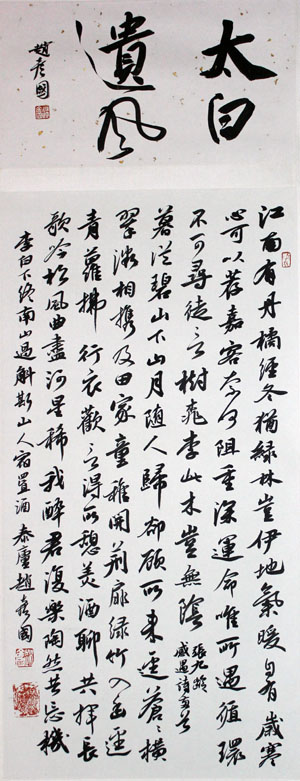 太白
遺風
趙彥國
江南有丹橘經冬猶綠林豈伊地氣暖自有歲寒
心可以荐嘉客奈何阻重深運命唯所遇循環
不可尋徒言樹桃李此木豈無陰
張九齡
感遇詩
暮從碧山下山月隨人歸卻顧所來逕蒼蒼橫
翠微相携及田家童稚開荊扉綠竹入幽逕
青蘿拂行衣歡言得所憩美酒聊共揮長
歌吟松風曲盡河星稀我醉君復樂陶然共忘機
李白下終南山過斛斯山人宿置酒 泰廬趙彥國